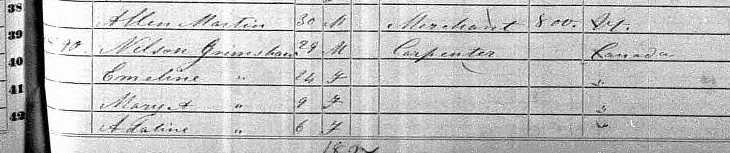 38 Allen Martin 30 M Merchant 800. Vt.
39 Nelson Grimshaw 29 M Carpenter Canada
40 Emeline " 24 F "
41 Mary A " 9 F "
42 Adaline " 6 F "